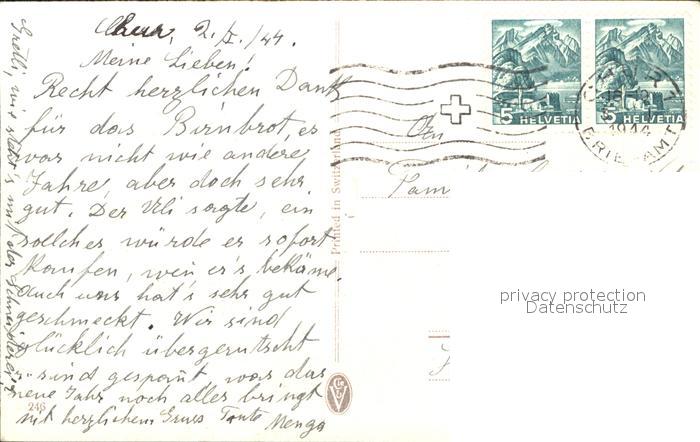 Chur, 2./I./44.
Meine Lieben!
Recht herzlichen Dank
für das Birnbrot, es
war nicht wie andere
Jahre, aber doch sehr
gut. Der Uli sagte, ein
solches würde er sofort
kaufen, wen er's bekäme.
Auch uns hat's sehr gut
geschmeckt. Wir sind
glücklich übergerutscht
u. sind gespant was das
neue Jahr noch alles bringt
mit herzlichem Gruss Tante Menga
Gretli, wie steht's mit der Schneiderei?
246
Printed in Switzerland
5 HELVETIA
5 HELVETIA
CHUR
1944
BRIEF-AMT
An
Fam
privacy protection
Datenschutz